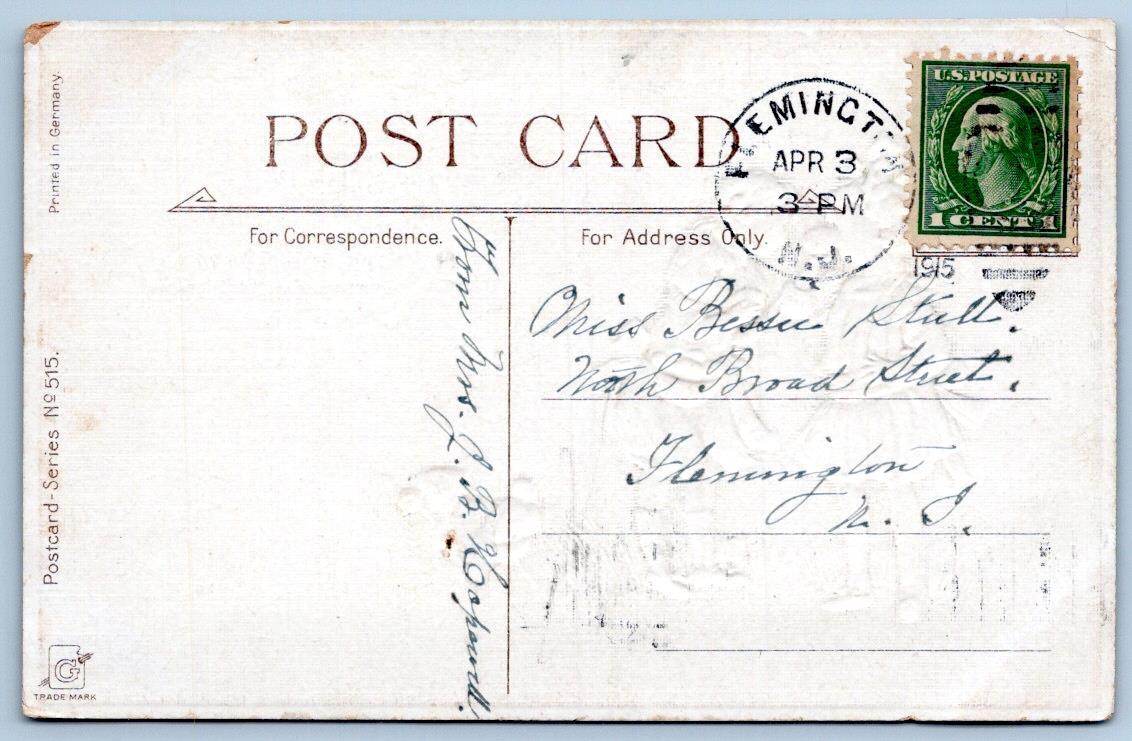 Printed in Germany.
POST CARD
FLEMINGTON
APR 3
3 PM
N.J.
1915
U.S. POSTAGE
1 CENT 1
For Correspondence.
For Address Only.
From Mrs. J. B. Hopewell.
Miss Bessie Stull.
North Broad Street.
Flemington
N. J.
Postcard-Series No 515.
G
TRADE MARK